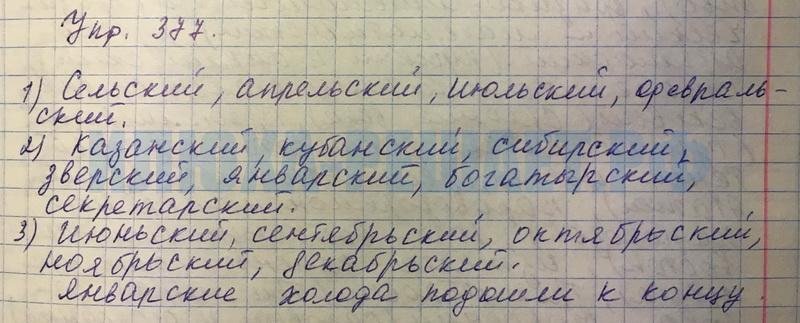 Упр. 377.
1) Сельский, апрельский, июльский, февраль-
ский.
2) Казанский, кубанский, сибирский,
зверский, январский, богатырский,
секретарский.
3) Июньский, сентябрьский, октябрьский,
ноябрьский, декабрьский.
Январские холода подошли к концу.